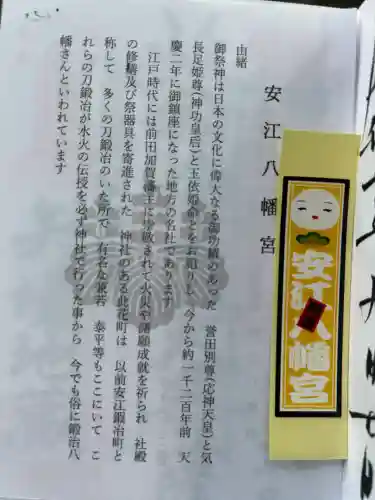 安江八幡宮
由緒
御祭神は日本の文化に偉大なる御功績のあった 誉田別尊(応神天皇)と気
長足姫尊(神功皇后)と玉依姫命とをお祀りし 今から約一千二百年前 天
慶二年に御鎮座になった地方の名社であります
江戸時代には前田加賀藩主に尊敬されて火災や諸願成就を祈られ 社殿
の修繕及び祭器具を寄進された 神社のある此花町は 以前安江鍛冶町と
称して 多くの刀鍛冶のいた所で 有名な兼若 泰平等もここにいて こ
れらの刀鍛冶が水火の伝授を必ず神社で行った事から 今でも俗に鍛冶八
幡さんといわれています
安江八幡宮